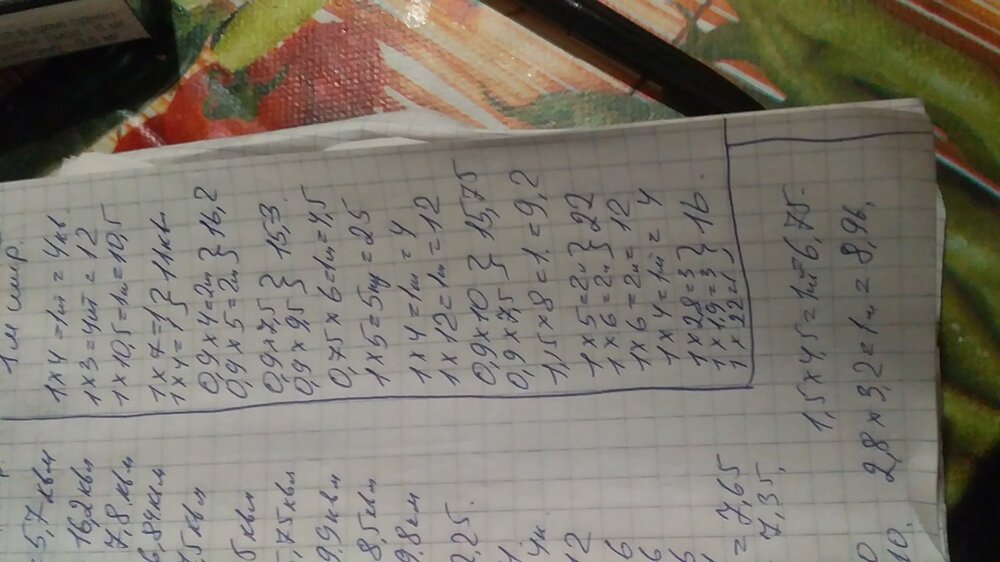 1 × 4 = 1шт = 4кв
1 × 3 = 4шт = 12
1 × 10,5 = 1шт = 10,5
1 × 7 = 1 } 11кв
1 × 4 = 1
0,9 × 4 = 2ш } 16,2
0,9 × 5 = 2ш
0,9 × 7,5 } 15,3
0,9 × 9,5
0,75 × 6 = 1ш = 4,5
1 × 5 = 5шт = 25
1 × 4 = 1ш = 4
1 × 12 = 1ш = 12
0,9 × 10 } 15,75
0,9 × 7,5
1,15 × 8 = 1. = 9,2
1 × 5 = 2ш } 22
1 × 6 = 2ш
1 × 6 = 2ш = 12
1 × 4 = 1ш = 4
1 × 2,8 = 3 } 16.
1 × 1,9 = 3
1 × 2,2 = 1
1,5 × 4,5 = 1ш = 6,75.
2,8 × 3,2 = 1ш = 8,96,
5,7 квм
16,2 квм
7,8 квм
6,84 квм
,5 квм
5 квм
,75 квм
9,9 квм
8,5 квм
9,8 км
2,25.
12
6
6
= 7,65
7,35.
10.